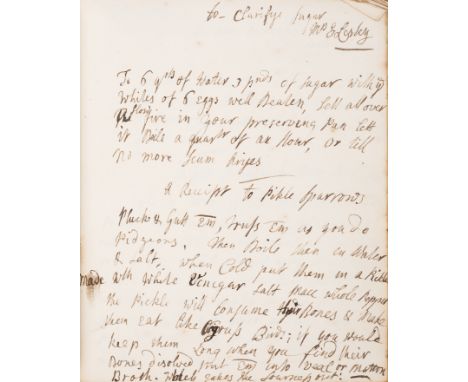 to Clarifye Sugar
Mrs E Lepley
To 6 qrts of Water 3 pnds of Sugar with ye
Whites of 6 eggs well Beaten, Sett all over
slow fire in your preserving Pan Lett
it Boile a quartr of an Hour, or till
No more Scum Rises
A Receipt to Pikle Sparrows
Pluck & Gutt Em, truss Em as you do
Pidgeons, then Boile them in Water
& Salt, when Cold put them in a Pickle
Made with White Vinegar Salt mace whole Pepper
the Pickle will Consume their Bones & Make
them eat like Birds; if you would
keep them Long when you find their
Bones disolved put Em into veal or mutton
Broth. which takes the Sourness out.